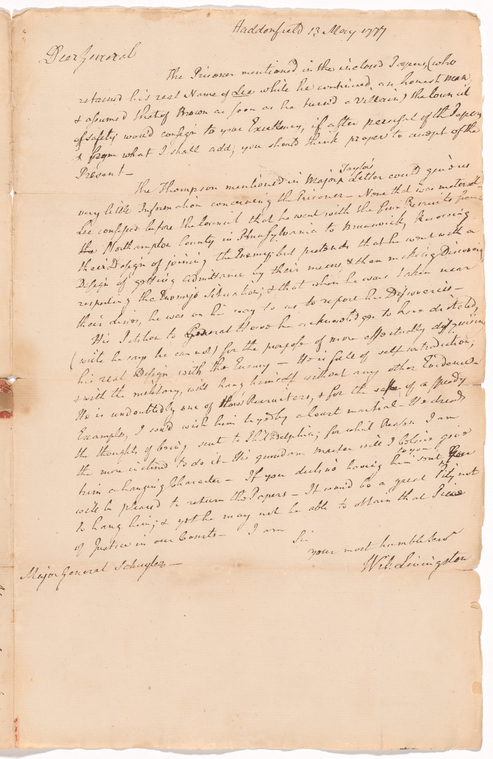 Haddonfield 13 May 1777
Dear General
The Prisoner mentioned in the inclosed Papers, (who
retained his real Name of Lee while he continued an honest man
& assumed that of Brown as soon as he turned a Villain) the Council
of Safety would consign to your Excellency, if after perusal of the Papers
& from what I shall add, you should think proper to accept of the
Present —
The Thompson mentioned in Major Taylor's Letter could give us
very little Information concerning the Prisoner — None that was material
Lee confessed before the Council that he went with the five Recruits from
the Northampton County in Pennsylvania to Brunswick, knowing
their Design of joining the Enemy; but pretends that he went with a
Design of getting admittance by their means & then making Discoveries
respecting the Enemy's Situation; & that when he was taken near
their lines, he was on his way to us to report his Discoveries —
His Petition to General Howe he acknowledges to have dictated
(write he says he cannot) for the purpose of more effectually disguising
his real Design with the Enemy — He is full of self contradiction,
& with the military, will hang himself without any other Evidence
He is undoubtedly one of their Recruiters, & for the sake of a speedy
Example, I could wish him tryed by a Court martial — He dreads
the thoughts of being sent to Philadelphia; for what Reason I am
the more inclined to do it — His quondam master will I believe give
him a hanging Character — If you decline having him sent to you, you
will be pleased to return the Papers — It would be a great pity not
to hang him; & yet he may not be able to obtain that Piece
of Justice in our Courts — I am
Sir
your most humble Serv
Major General Schuyler —
Wil. Livingston